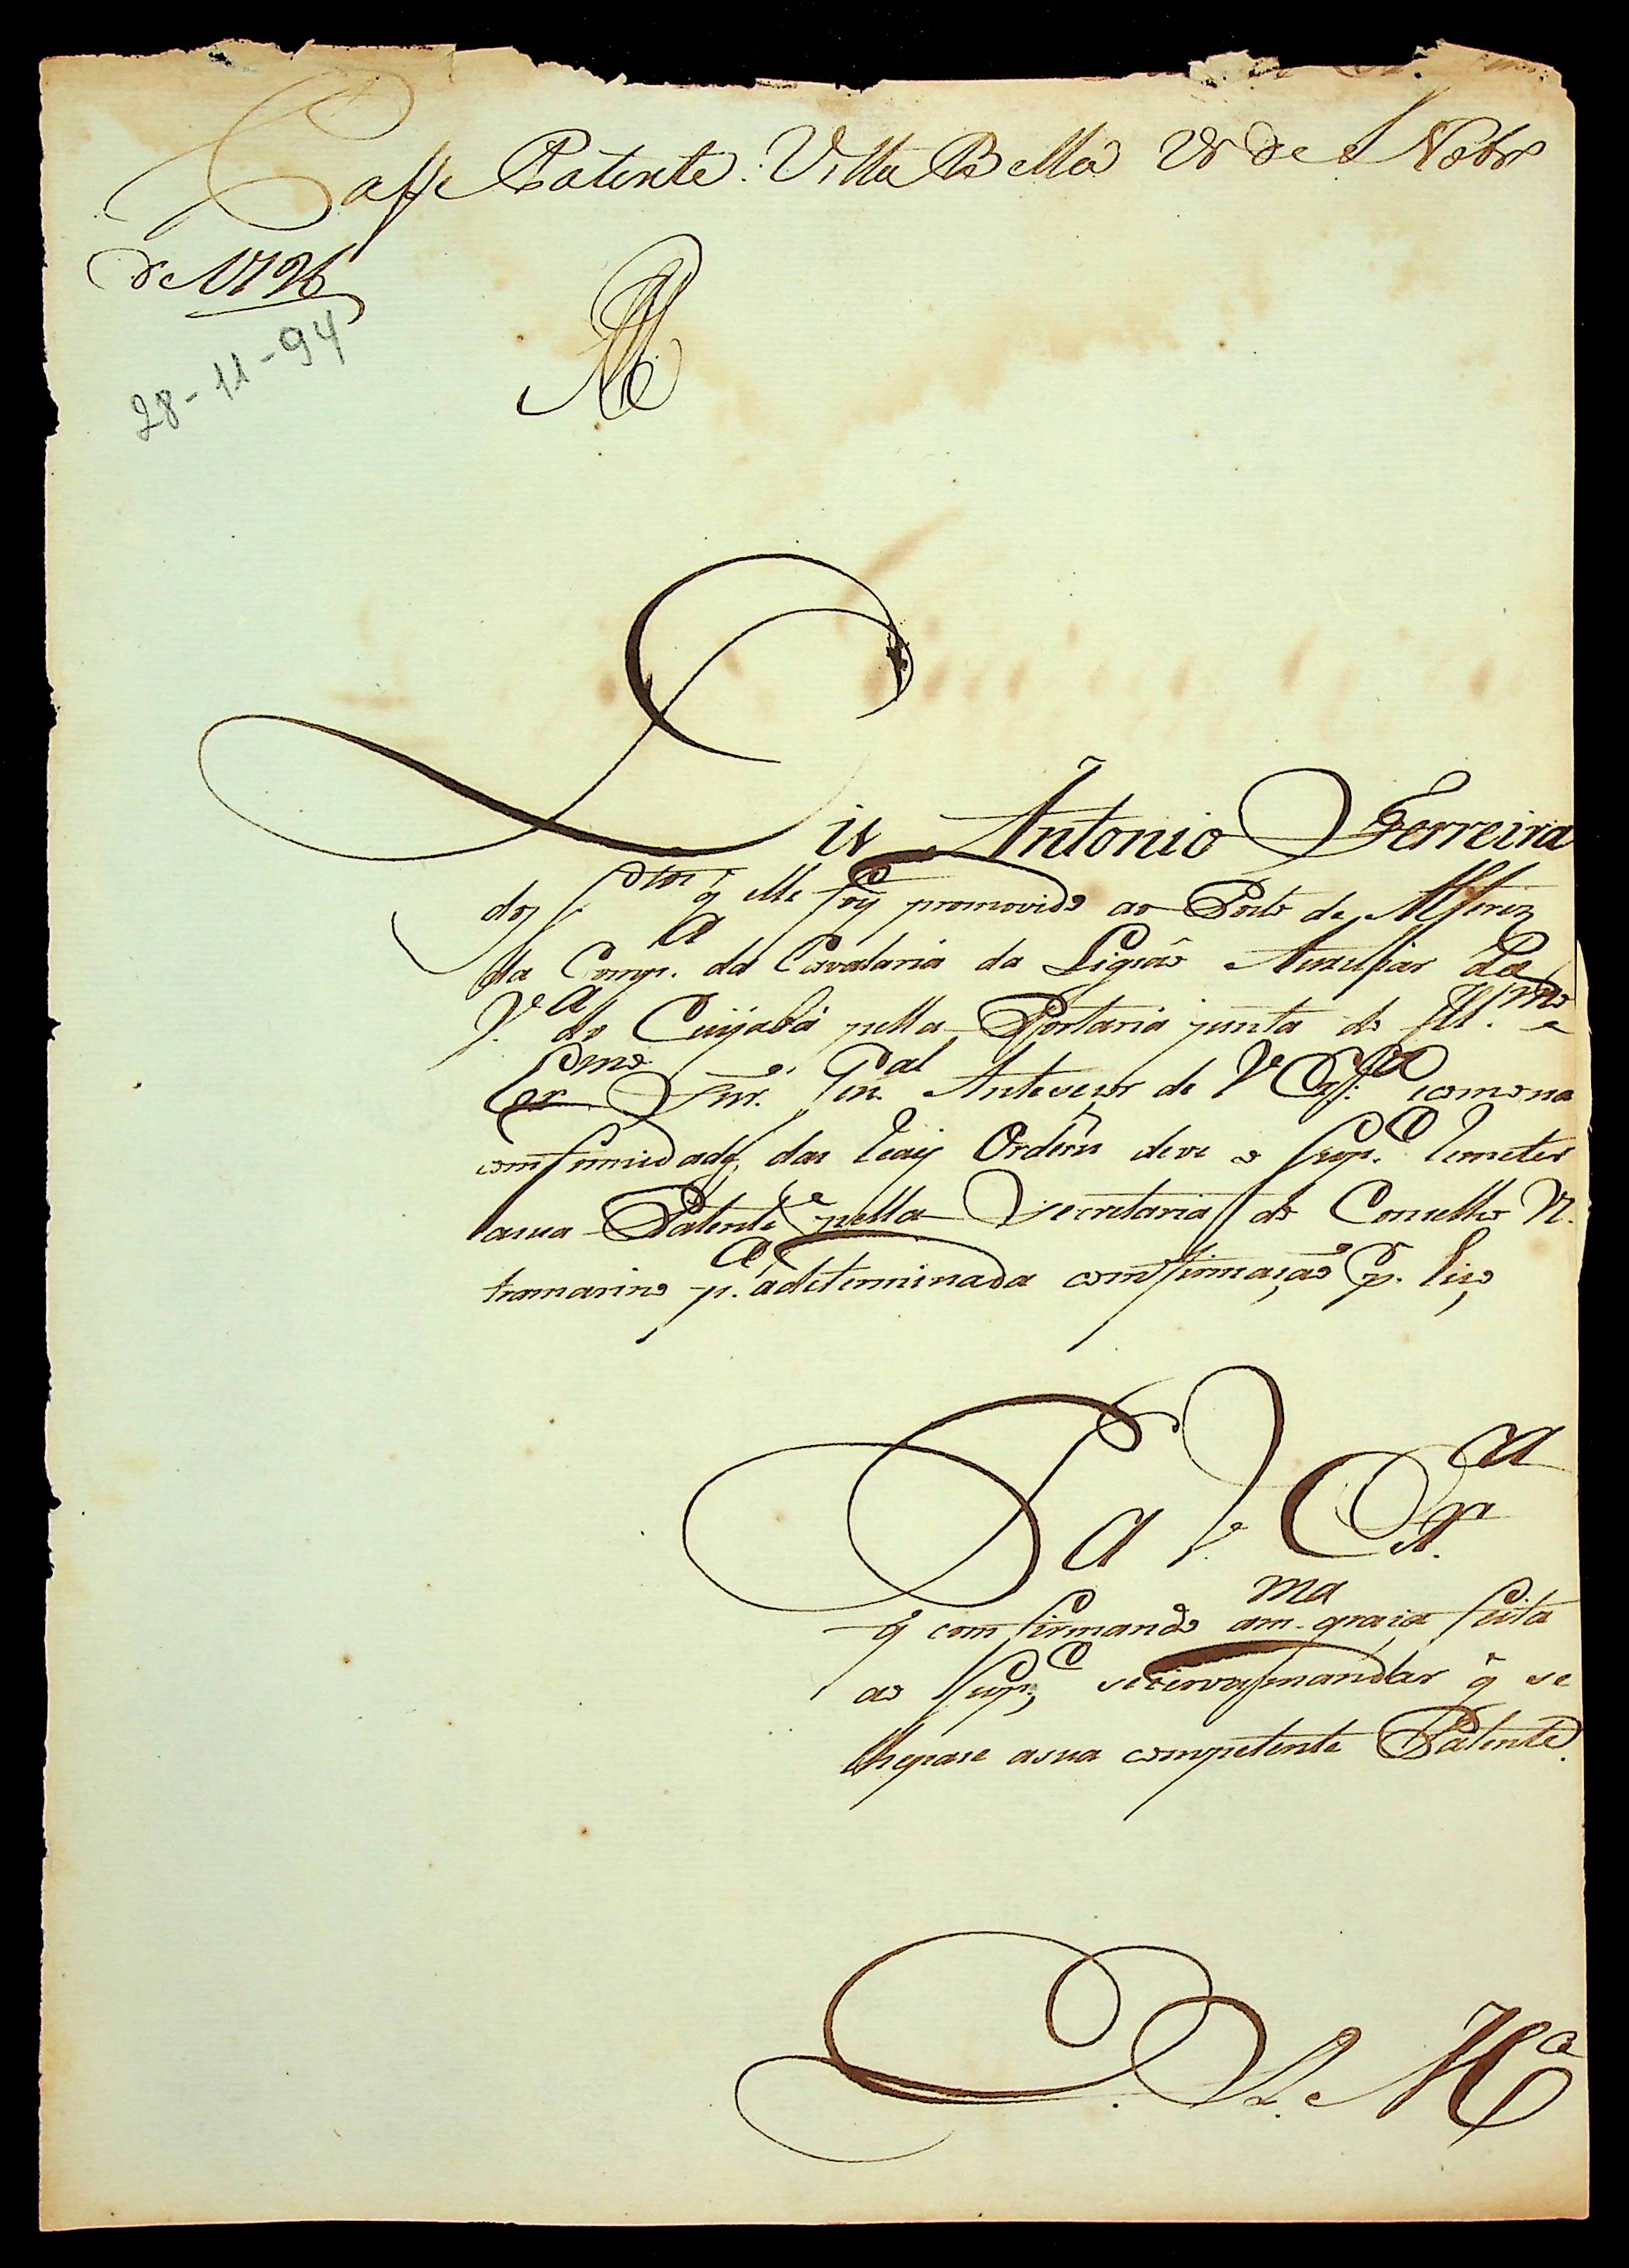 Passe Patente. Villa Bella 28 de Nobro
de 1796
28-11-94
Diz Antonio Ferreira
dos Stos q̃ elle foy promovido ao Posto de Alferez
da Compa. da Cavalaria da Ligião Auxiliar da
Va. do Cuyabá pella Portaria junta do Illmo. e
Exmo Snr. Genal. Antecesor de V Exca. e como na
comformidade das Reaiz Ordens deve o Supe. Remeter
a sua Patente pella Secretaria do Conselho Ul
tramarino pa. a determinada comfirmação P. Riso
Pa V. Exca.
q̃ comfirmando a mma graça feita
ao Supe. se sirva mandar q̃ se
lhe pase a sua competente Patente.
E. R. Mce